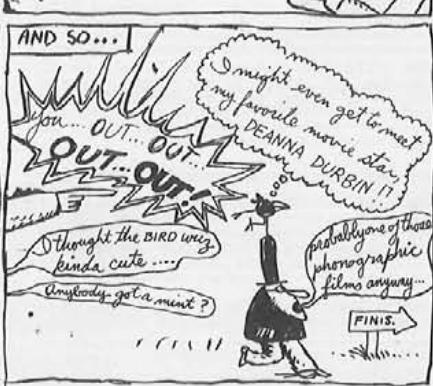 AND SO...
you... OUT... OUT...
OUT... OUT!
I might even get to meet
my favorite movie star,
DEANNA DURBIN !?
I thought the BIRD wuz
kinda cute ....
Anybody got a mint?
probably one of those
phonographic
films anyway...
FINIS.